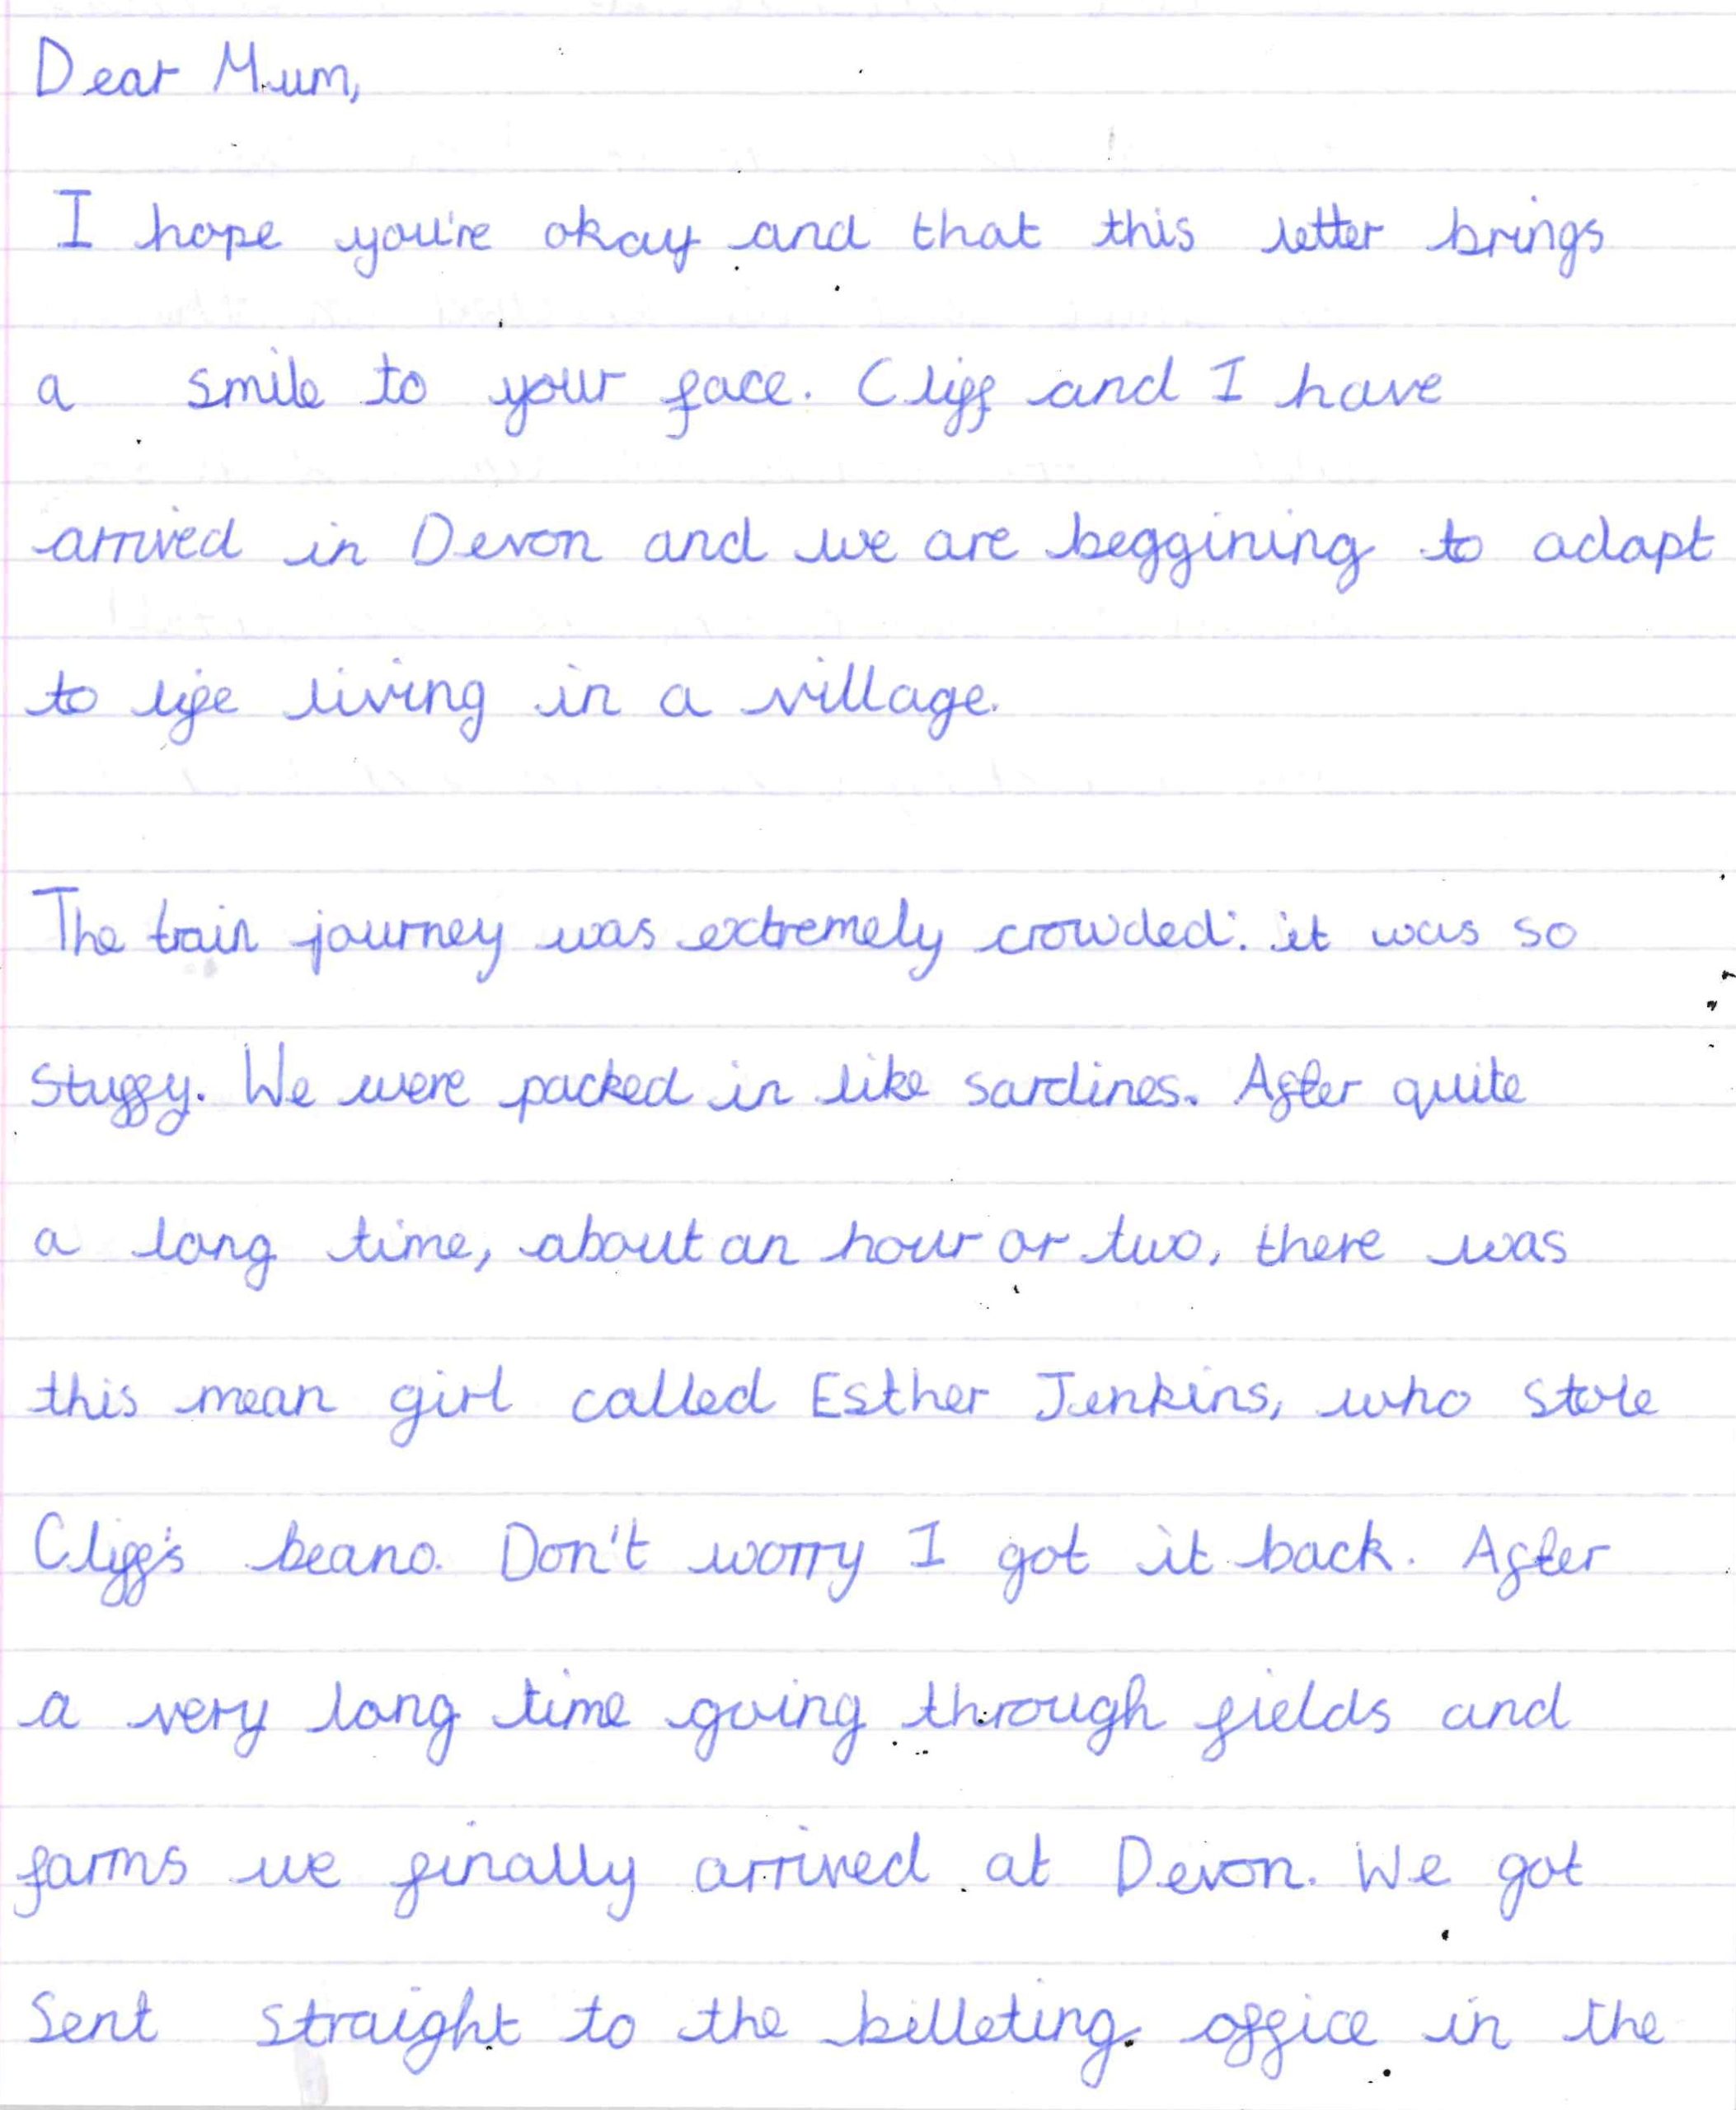 Dear Mum,
I hope you're okay and that this letter brings
a smile to your face. Cliff and I have
arrived in Devon and we are beggining to adapt
to life living in a village.
The train journey was extremely crowded: it was so
stuffy. We were packed in like sardines. After quite
a long time, about an hour or two, there was
this mean girl called Esther Jenkins, who stole
Cliff's beano. Don't worry I got it back. After
a very long time going through fields and
farms we finally arrived at Devon. We got
sent straight to the billeting office in the